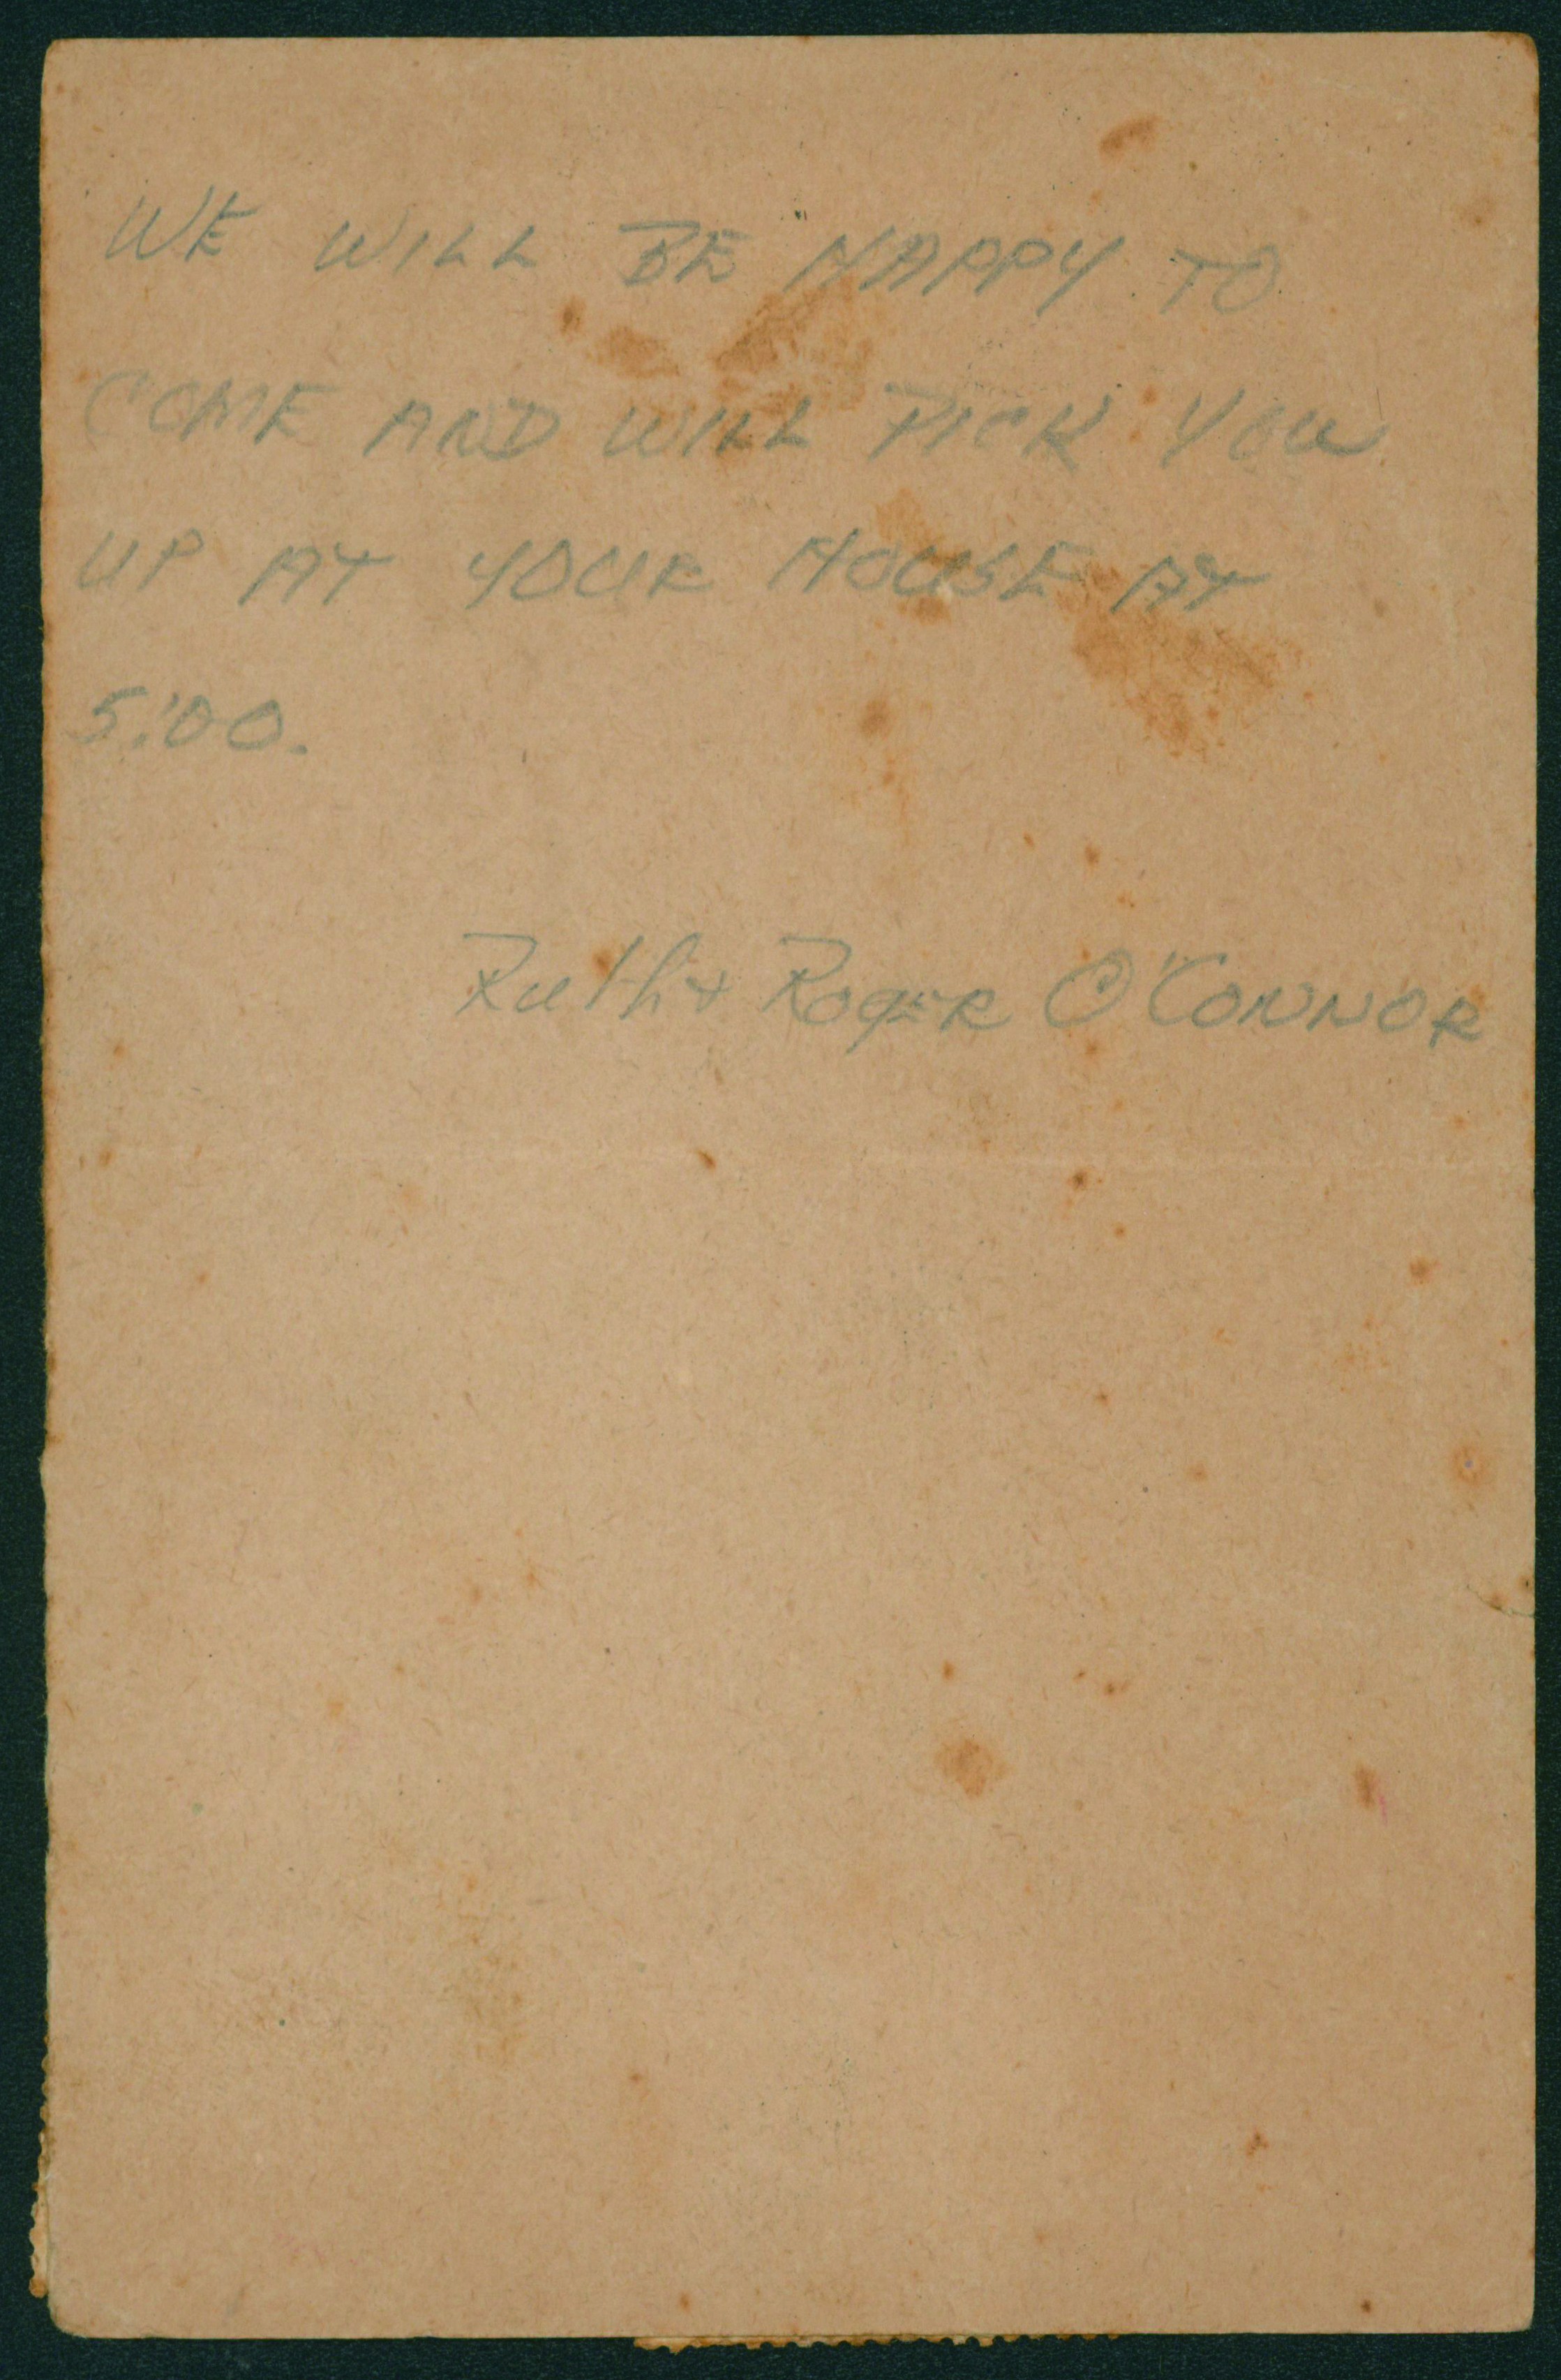 WE WILL BE HAPPY TO
COME AND WILL PICK YOU
UP AT YOUR HOUSE AT
5:00.
Ruth + ROGER O'CONNOR